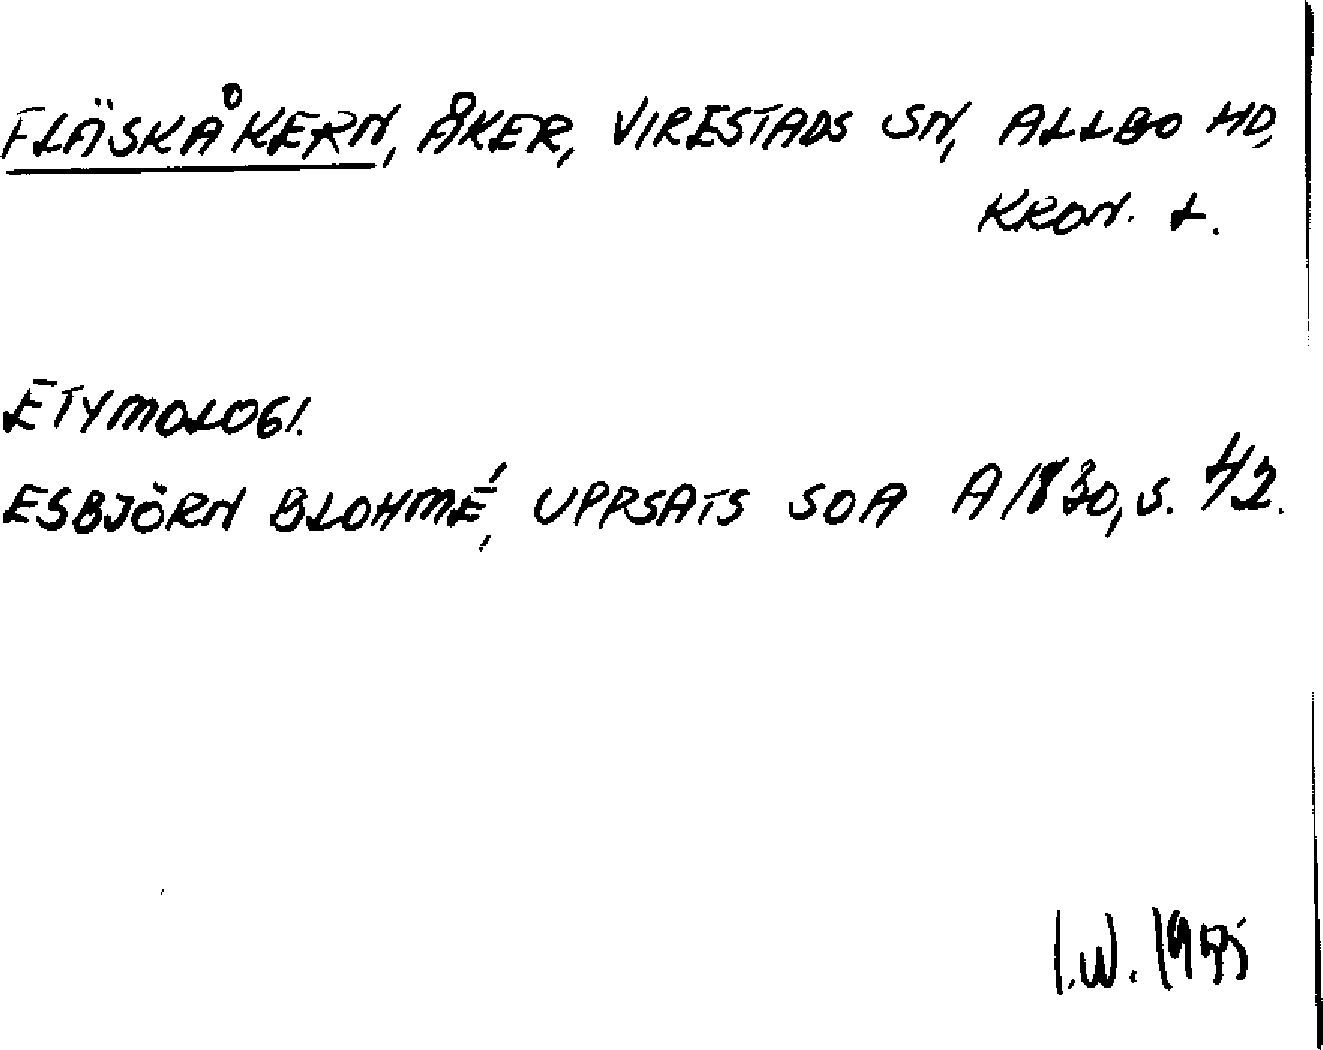 FLÄSKÅKERN, ÅKER, VIRESTADS SN, ALLBO HD,
KRON. L.
ETYMOLOGI.
ESBJÖRN BLOHMÉ, UPPSATS SOA A 1830, S. 42.
I.W.